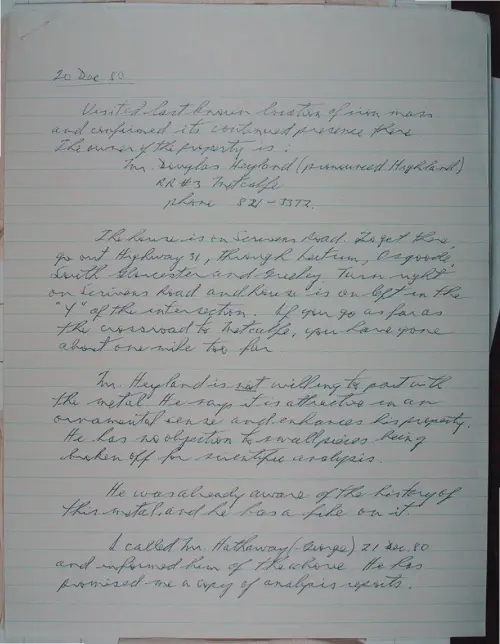 20 Dec 80
Visited last known location of iron mass
and confirmed its continued presence there
The owner of the property is:
Mr. Douglas Heyland (pronounced Highland)
RR #3 Metcalfe
phone 821-3372.
The house is on Scrivens Road. To get there,
go out Highway 31, through Leitrim, Osgoode,
South Gloucester and Greeley. Turn right
on Scrivens Road and house is on left in the
"Y" of the intersection. If you go as far as
the crossroad to Metcalfe, you have gone
about one mile too far
Mr. Heyland is not willing to part with
the metal. He says it is attractive in an
ornamental sense and enhances his property.
He has no objection to small pieces being
broken off for scientific analysis.
He was already aware of the history of
this metal, and he has a file on it.
I called Mr. Hathaway (George) 21 Dec. 80
and informed him of the above. He has
promised me a copy of analysis reports.